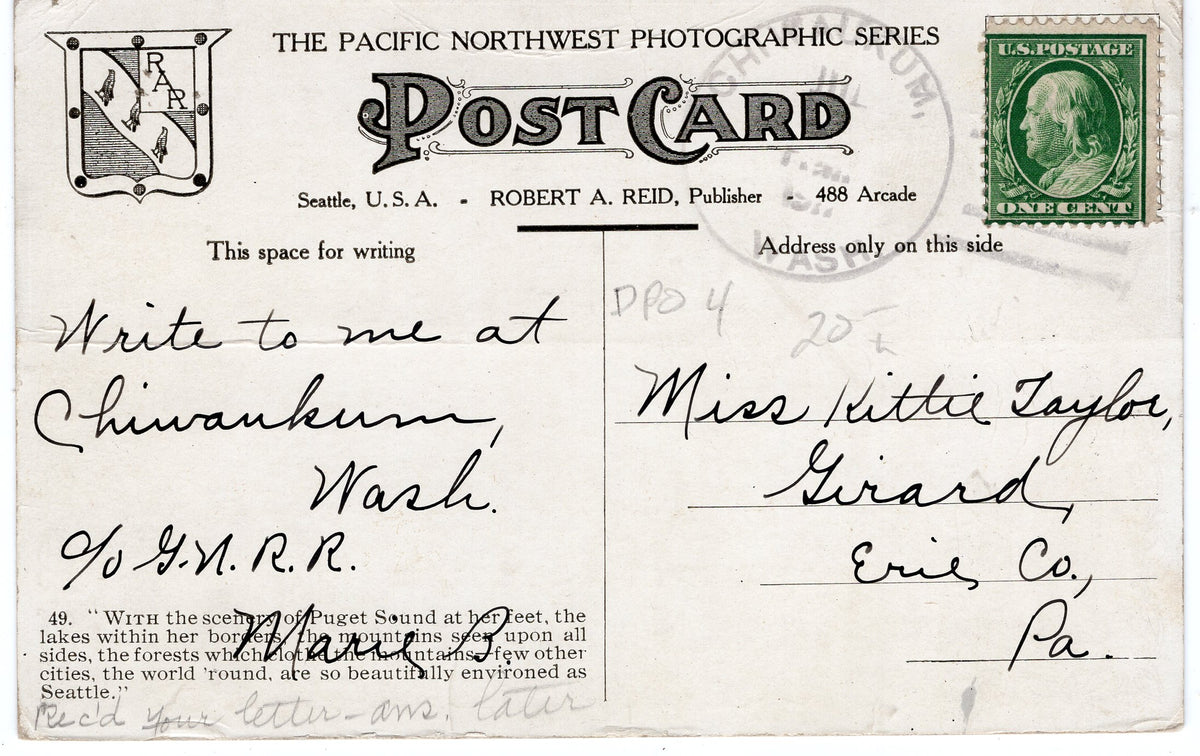 RAR
THE PACIFIC NORTHWEST PHOTOGRAPHIC SERIES
POST CARD
Seattle, U. S. A. - ROBERT A. REID, Publisher - 488 Arcade
CHIWAUKUM,
JUL
WASH
U.S. POSTAGE
ONE CENT
This space for writing
Address only on this side
Write to me at
Chiwaukum,
Wash.
c/o G.N. R. R.
Marie B.
49. "WITH the scenery of Puget Sound at her feet, the
lakes within her borders, the mountains seen upon all
sides, the forests which clothe the mountains—few other
cities, the world 'round, are so beautifully environed as
Seattle."
Rec'd your letter - ans. later
DPO 4
20
Miss Kittie Taylor,
Girard,
Erie Co.,
Pa.